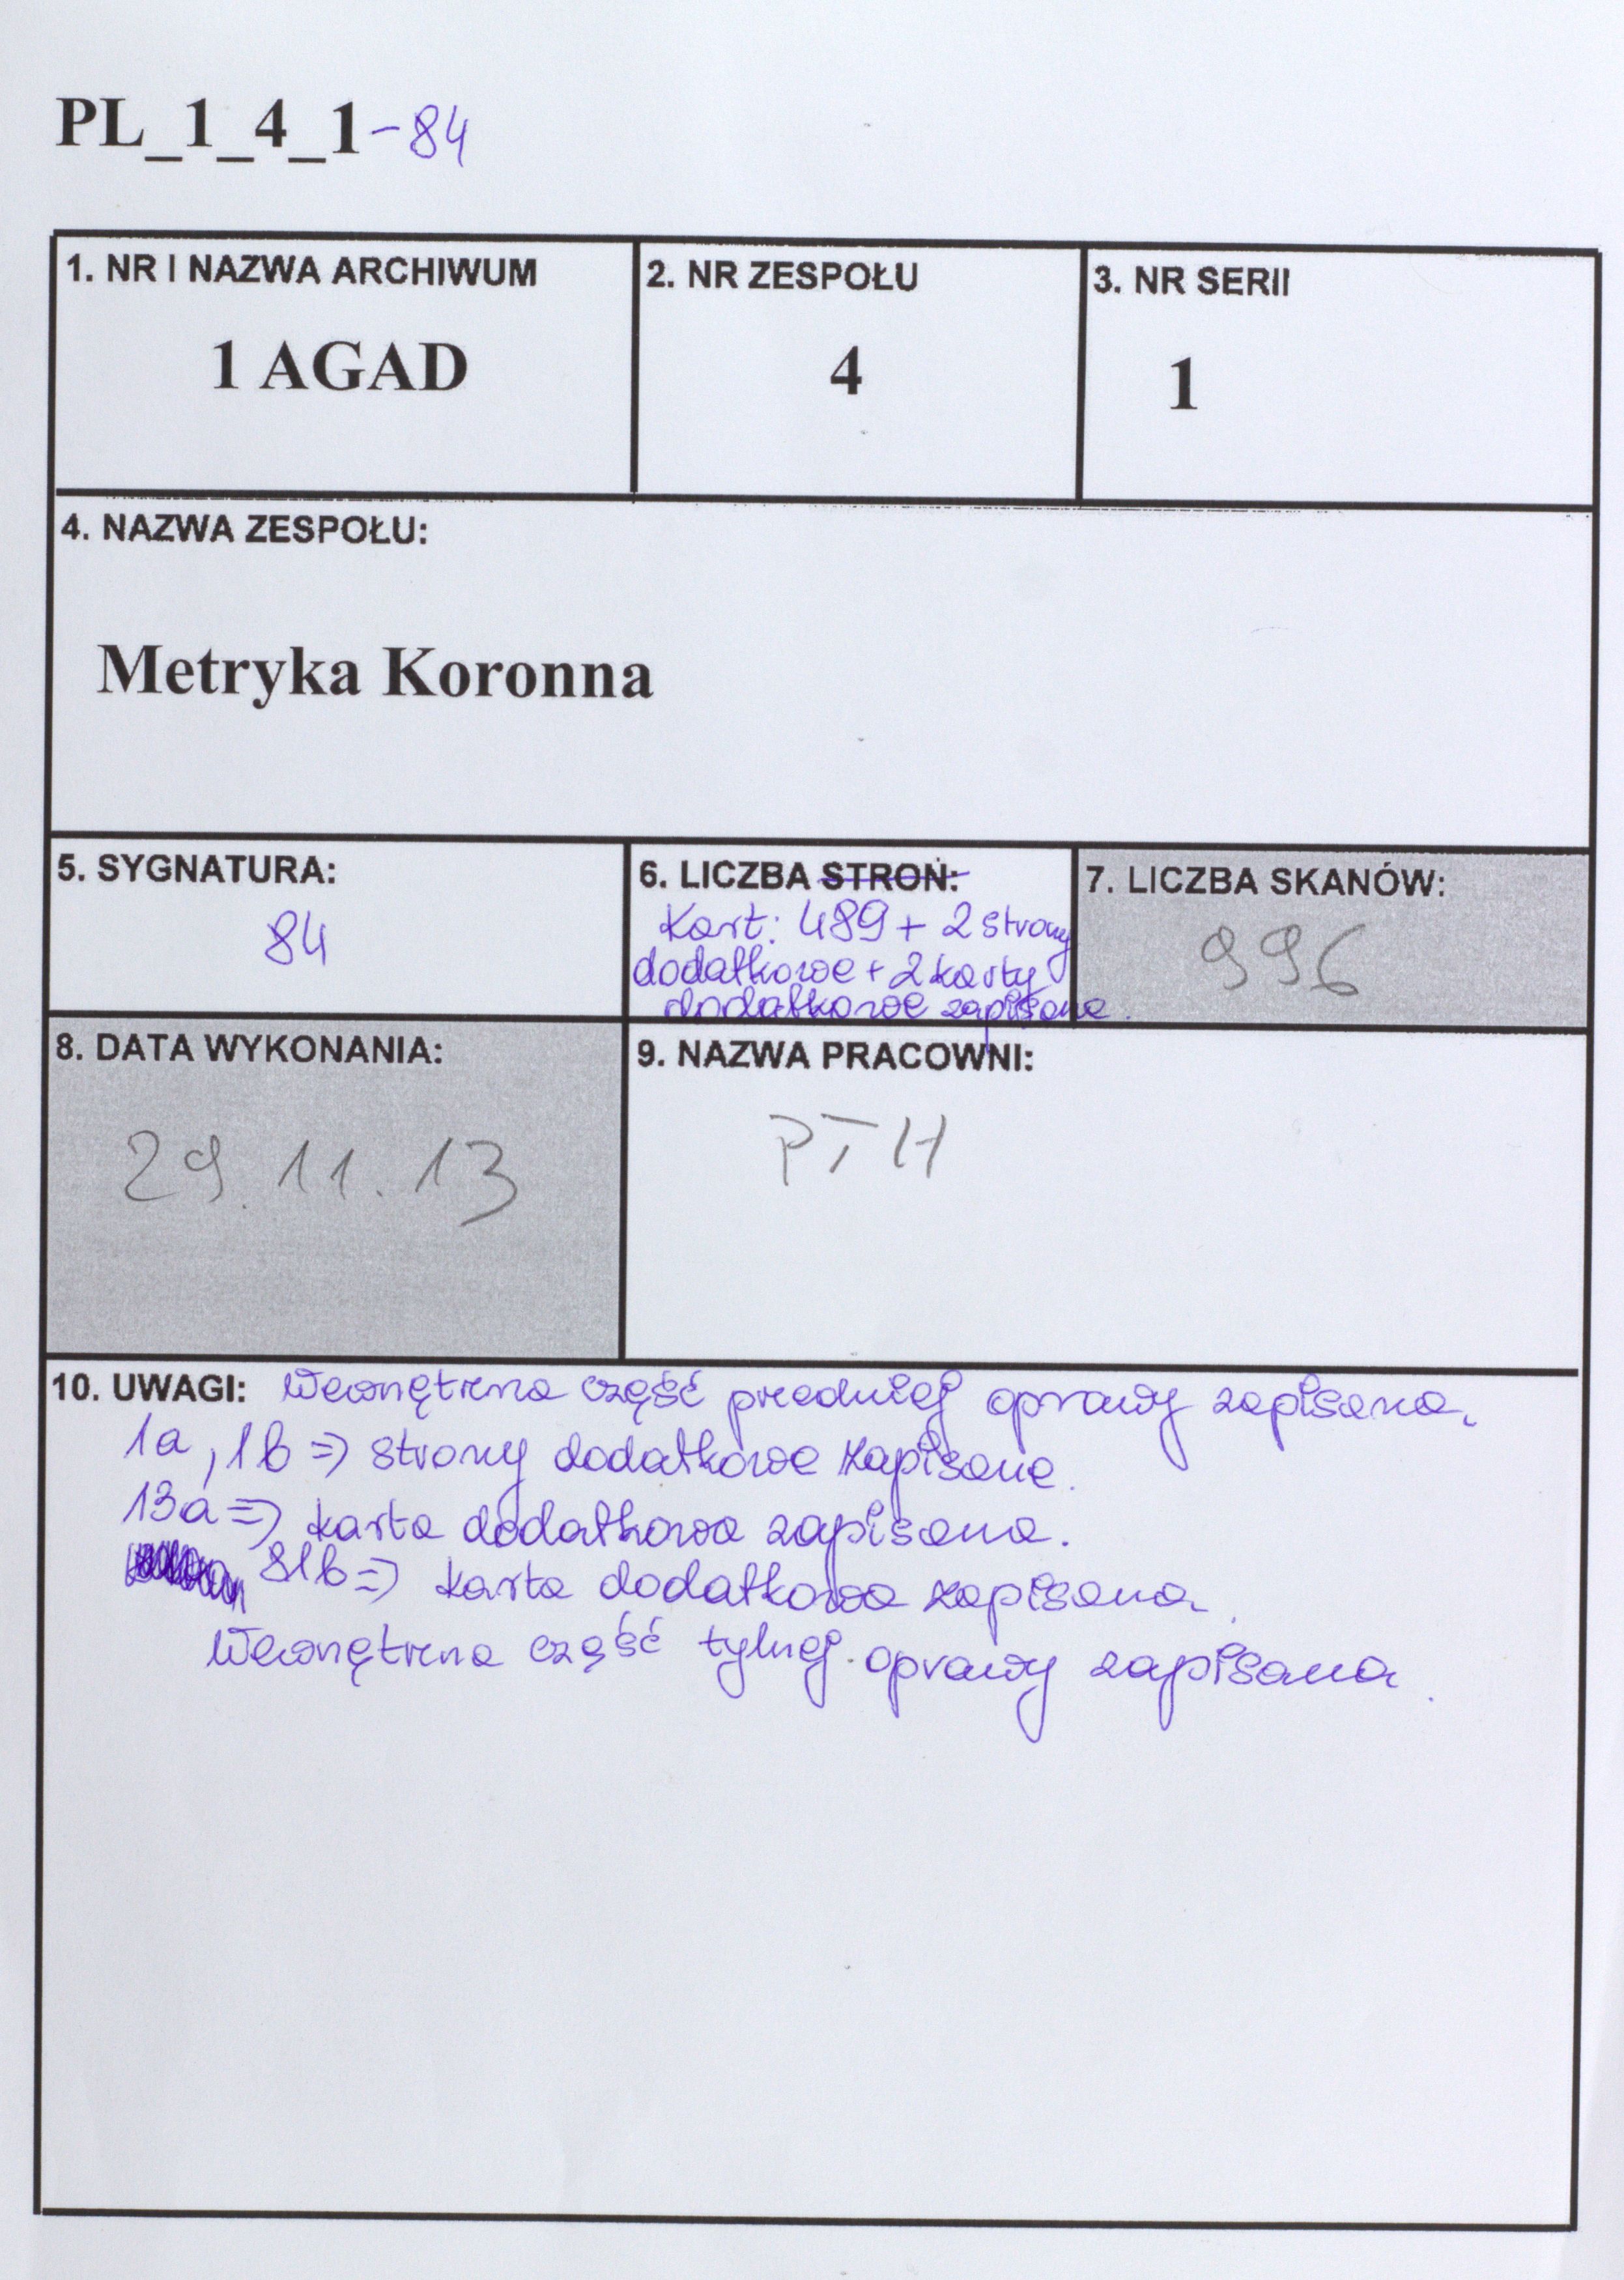 PL_1_4_1-84
1. NR I NAZWA ARCHIWUM
1 AGAD
2. NR ZESPOŁU
4
3. NR SERII
1
4. NAZWA ZESPOŁU:
Metryka Koronna
5. SYGNATURA:
84
6. LICZBA STRON:
Kart: 489 + 2 strony
dodatkowe + 2 karty
dodatkowe zapisane.
7. LICZBA SKANÓW:
996
8. DATA WYKONANIA:
29.11.13
9. NAZWA PRACOWNI:
PTH
10. UWAGI: Wewnętrzna część przedniej oprawy zapisana.
1a, 1b => strony dodatkowe zapisane.
13a => karta dodatkowa zapisana.
81b => karta dodatkowa zapisana.
Wewnętrzna część tylnej oprawy zapisana.